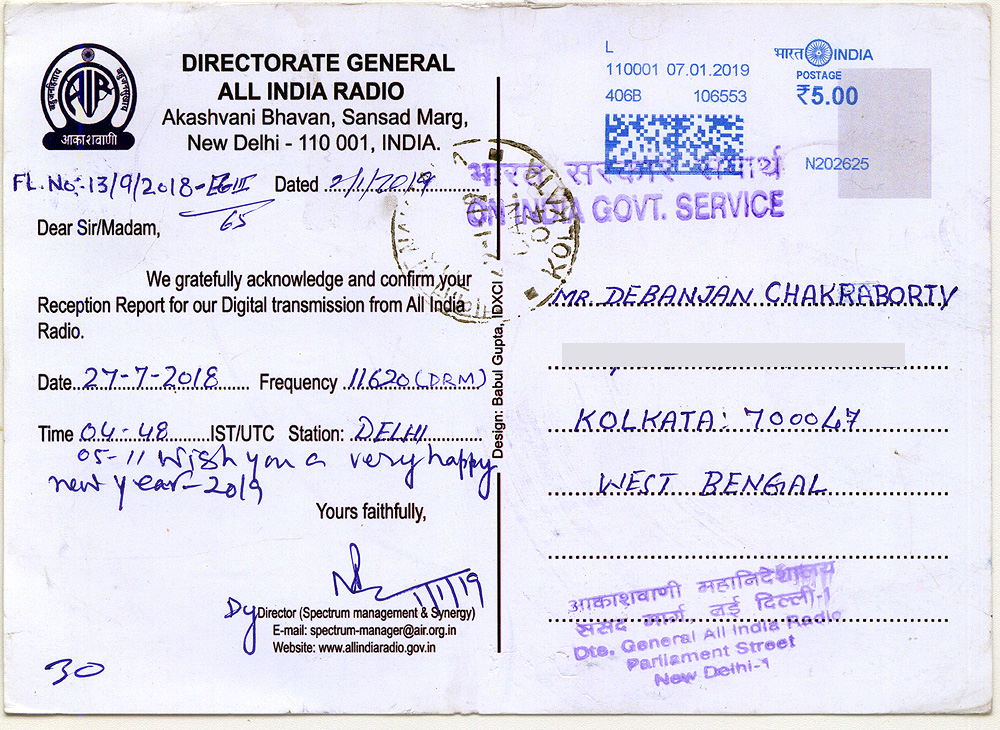 बहुजनहिताय बहुजनसुखाय
AIR
आकाशवाणी
DIRECTORATE GENERAL
ALL INDIA RADIO
Akashvani Bhavan, Sansad Marg,
New Delhi - 110 001, INDIA.
FL.No:-13/9/2018-
65
Dated 2/1/2019
Dear Sir/Madam,
We gratefully acknowledge and confirm your
Reception Report for our Digital transmission from All India
Radio.
Date..27-7-2018........ Frequency .11620 (DRM)
Time 04-48..........IST/UTC Station: .DELHI.............
05-11 Wish you a very happy
new year-2019
Yours faithfully,
1/1/19
Dy Director (Spectrum management & Synergy)
E-mail: spectrum-manager@air.org.in
Website: www.allindiaradio.gov.in
30
Design: Babul Gupta, IDXCI /
L
110001 07.01.2019
406B 106553
भारत INDIA
POSTAGE
₹5.00
N202625
भारत सरकार सेवार्थ
ON INDIA GOVT. SERVICE
KOLKATA
MR. DEBANJAN CHAKRABORTY
KOLKATA: 700047
WEST BENGAL
आकाशवाणी महानिदेशालय
संसद मार्ग, नई दिल्ली-1
Dte. General All India Radio
Parliament Street
New Delhi-1